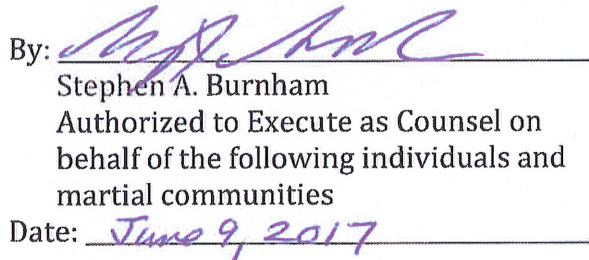 By:
Stephen A. Burnham
Authorized to Execute as Counsel on
behalf of the following individuals and
martial communities
Date: June 9, 2017